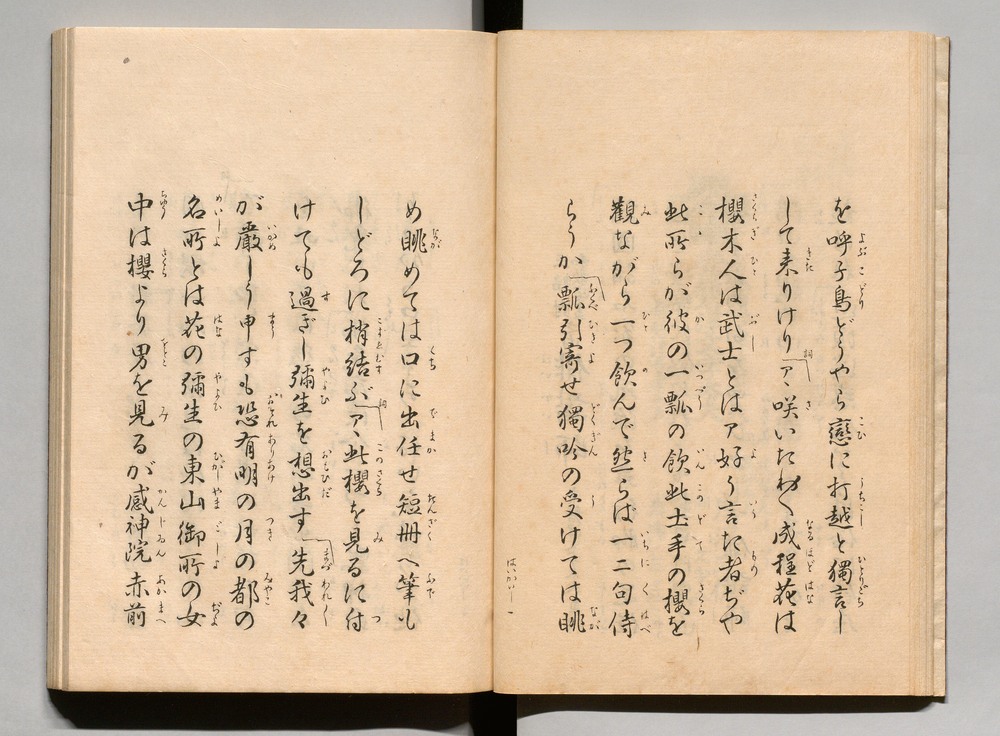 を呼子鳥どうやら戀に打越と獨言し
して来りけり ア丶咲いたわ〱成程花は
櫻木人は武士とはア好う言た者ぢや
此所らが彼の一瓢の飲此士手の櫻を
觀ながら一つ飲んで然らば一二句侍
らうか 瓢引寄せ獨吟の受けては眺
め眺めては口に出任せ短冊へ筆も
しどろに梢結ぶ ア丶此櫻を見るに付
けても過ぎし彌生を想出す 先我々
が嚴しう申すも恐有明の月の都の
名所とは花の彌生の東山御所の女
中は櫻より男を見るが感神院赤前